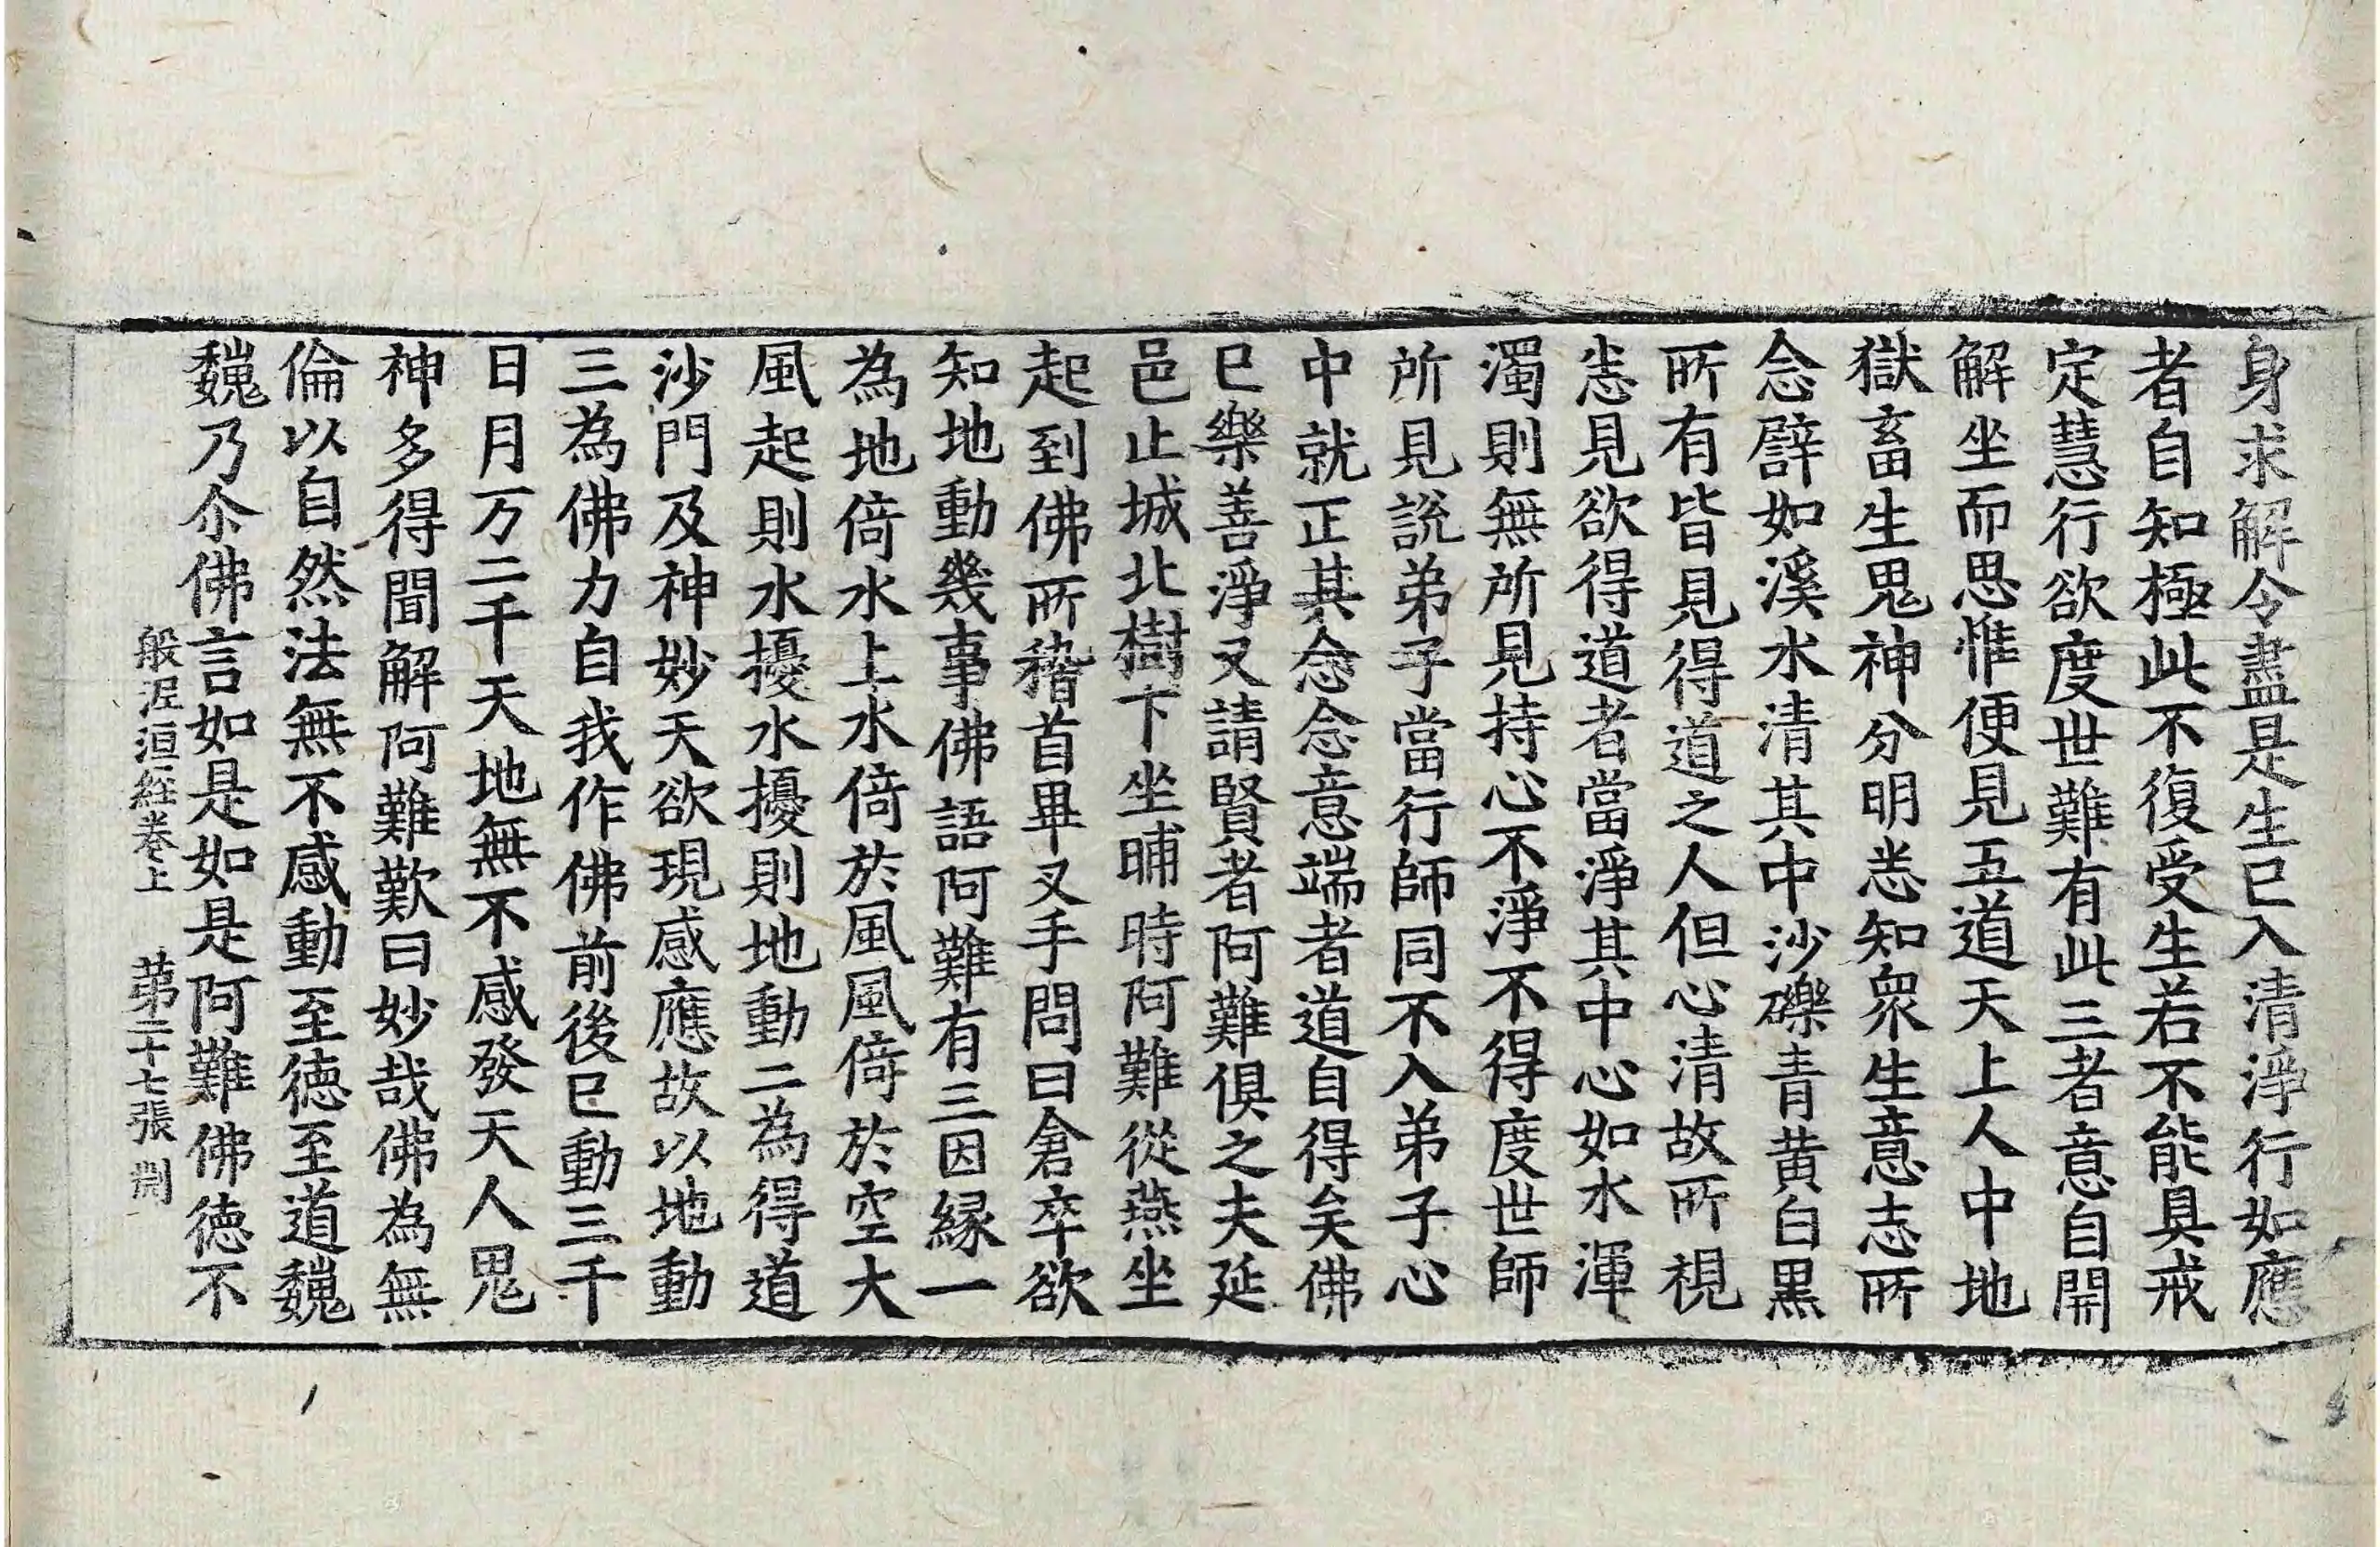 身求解令盡是生已入清淨行如應
者自知極此不復受生若不能具戒
定慧行欲度世難有此三者意自開
解坐而思惟便見五道天上人中地
獄畜生鬼神分明恙知衆生意志所
念譬如溪水清其中沙礫青黃白黑
所有皆見得道之人但心清故所視
恙見欲得道者當淨其中心如水渾
濁則無所見持心不淨不得度世師
所見說弟子當行師同不入弟子心
中就正其念念意端者道自得矣佛
已樂善淨又請賢者阿難俱之夫延
邑止城北樹下坐晡時阿難從燕坐
起到佛所稽首畢叉手問曰倉卒欲
知地動幾事佛語阿難有三因緣一
為地倚水上水倚於風風倚於空大
風起則水擾水擾則地動二為得道
沙門及神妙天欲現感應故以地動
三為佛力自我作佛前後已動三千
日月万二千天地無不感發天人鬼
神多得聞解阿難歎曰妙哉佛為無
倫以自然法無不感動至德至道巍
巍乃尒佛言如是如是阿難佛德不
般泥洹經卷上 第二十七張